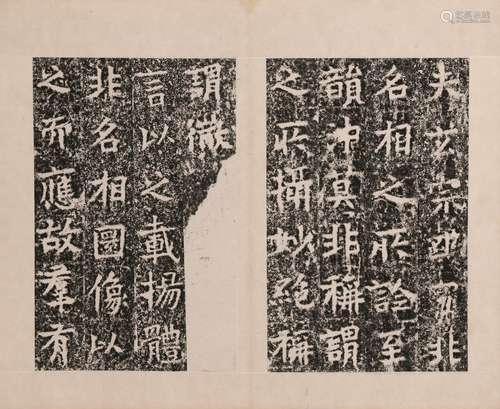 夫玄宗幽非
名相之所詮至
韻沖莫非稱謂
之所攝妙絕稱
謂微
言以之載揚體
非名相圖像以
之而應故羣有